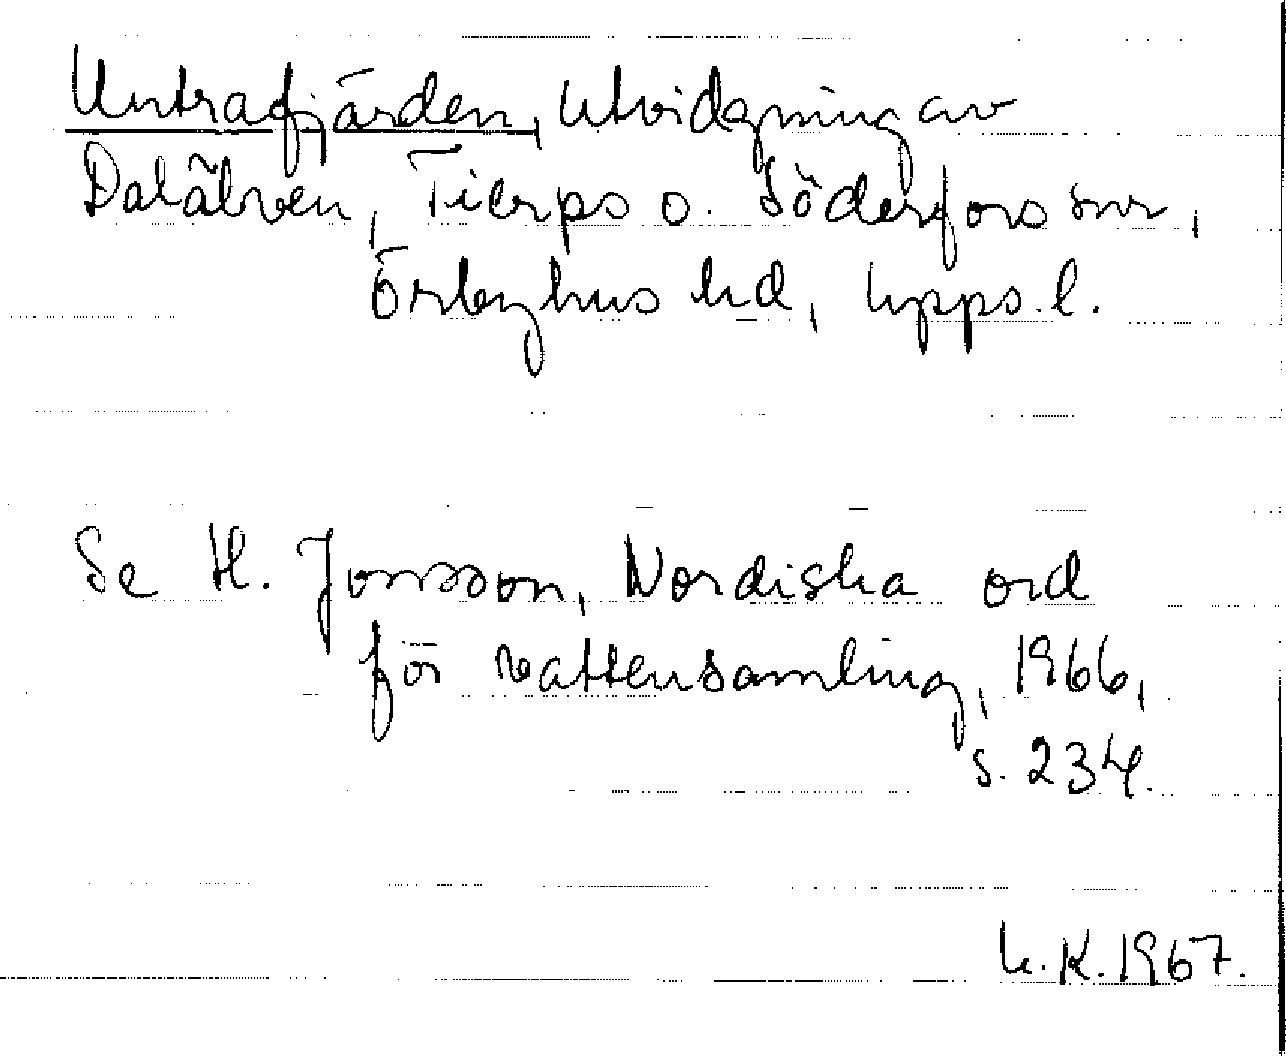 Untrafjärden, utvidgning av
Dalälven, Tierps o. Söderfors snr,
Örbyhus hd, Upps. l.
Se H. Jonsson, Nordiska ord
för vattensamling, 1966,
s. 234.
K. 1967.